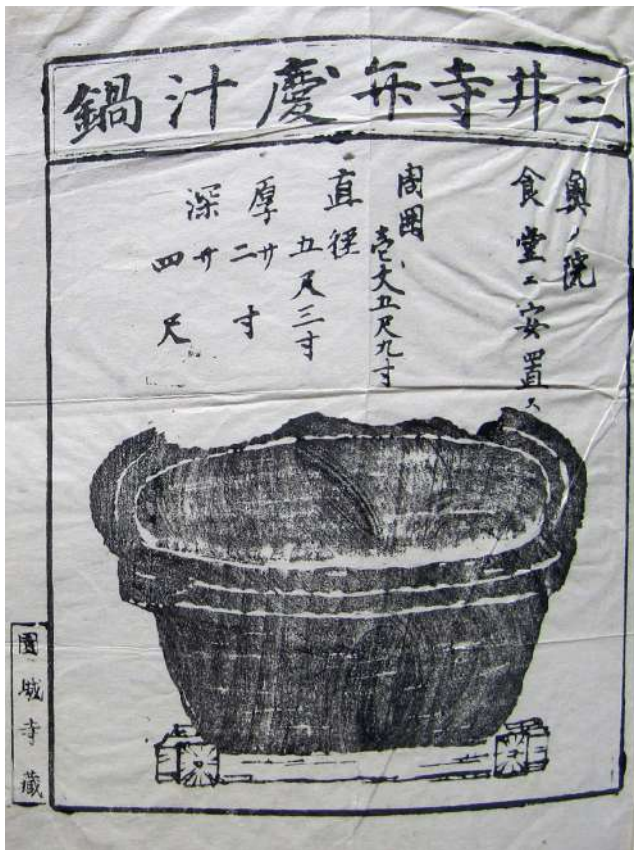 三井寺弁慶汁鍋
奥ノ院
食堂エ安置ス
周圍
壱丈五尺九寸
直径
五尺三寸
厚サ
二寸
深サ
四尺
園城寺藏